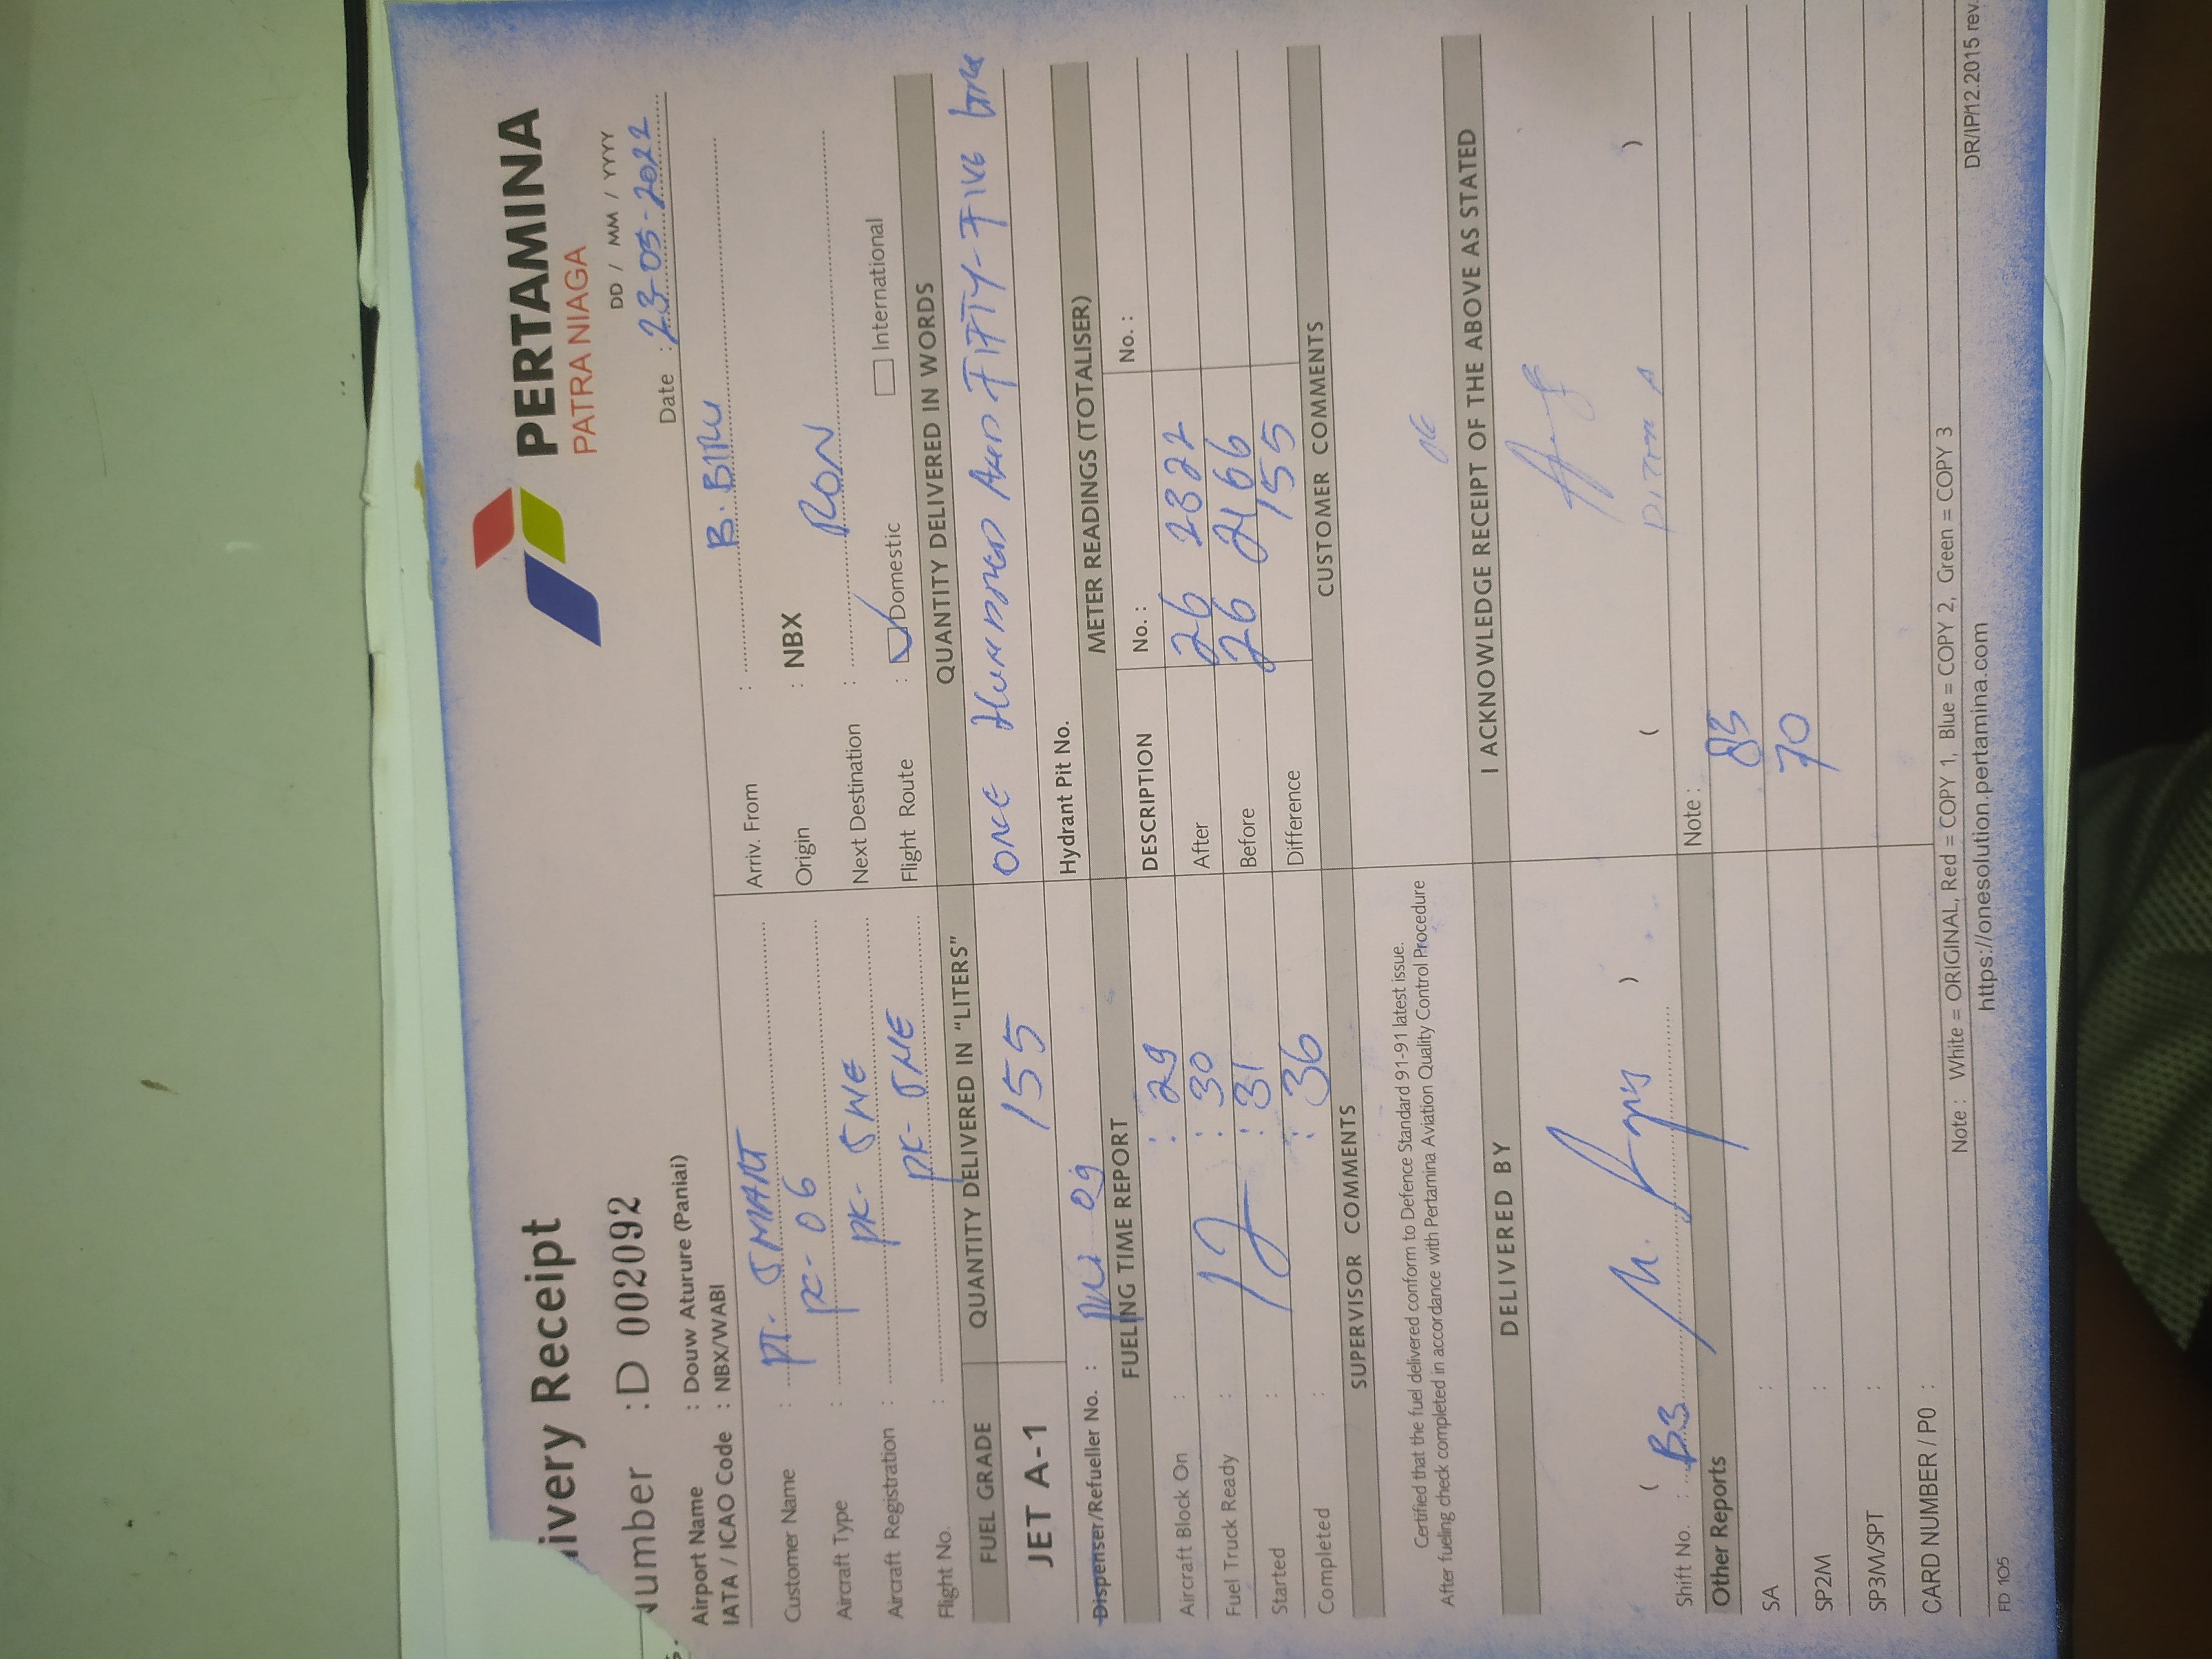 livery Receipt
PERTAMINA
PATRA NIAGA
Number : D 002092
DD / MM / YYYY
Airport Name : Douw Aturure (Paniai)
Date : 23-05-2022
IATA / ICAO Code : NBX/WABI
Customer Name : PT. SMART
Arriv. From : B. BIRU
Aircraft Type : PC-06
Origin : NBX
Aircraft Registration : PK-SNE
Next Destination : RON
Flight No. : PK-SNE
Flight Route : Domestic International
FUEL GRADE
QUANTITY DELIVERED IN "LITERS"
QUANTITY DELIVERED IN WORDS
JET A-1
155
ONE HUNDRED AND FIFTY-FIVE
Dispenser/Refueller No. : 09
Hydrant Pit No.
FUELING TIME REPORT
METER READINGS (TOTALISER)
DESCRIPTION No. : No. :
Aircraft Block On : : 29
After 26 2322
Fuel Truck Ready : 12 : 30
Before 26 2166
Started : : 31
Difference 155
Completed : : 36
SUPERVISOR COMMENTS
CUSTOMER COMMENTS
Certified that the fuel delivered conform to Defence Standard 91-91 latest issue.
After fueling check completed in accordance with Pertamina Aviation Quality Control Procedure
OK
DELIVERED BY
I ACKNOWLEDGE RECEIPT OF THE ABOVE AS STATED
( )
( )
Shift No. :
Note :
Other Reports
83
SA :
70
SP2M :
SP3M/SPT :
CARD NUMBER / P0 :
Note : White = ORIGINAL, Red = COPY 1, Blue = COPY 2, Green = COPY 3
FD 105
https://onesolution.pertamina.com
DR/IP/12.2015 rev.